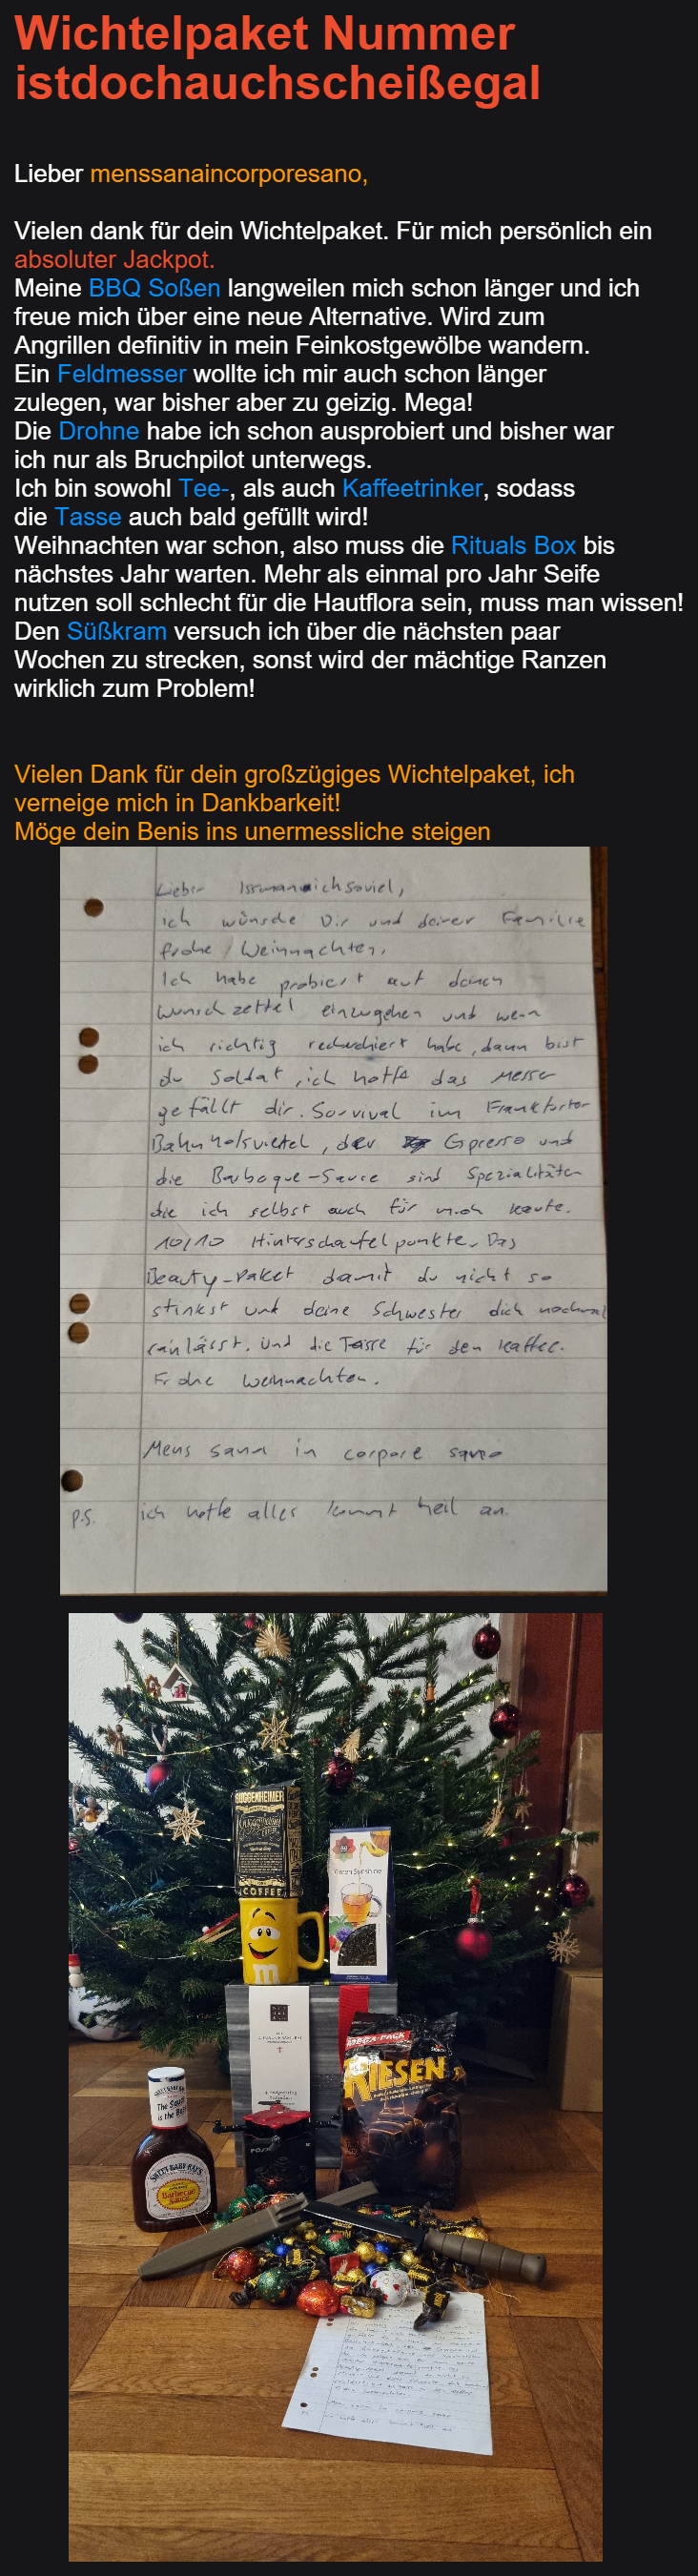 Wichtelpaket Nummer
istdochauchscheißegal
Lieber menssanaincorporesano,
Vielen dank für dein Wichtelpaket. Für mich persönlich ein
absoluter Jackpot.
Meine BBQ Soßen langweilen mich schon länger und ich
freue mich über eine neue Alternative. Wird zum
Angrillen definitiv in mein Feinkostgewölbe wandern.
Ein Feldmesser wollte ich mir auch schon länger
zulegen, war bisher aber zu geizig. Mega!
Die Drohne habe ich schon ausprobiert und bisher war
ich nur als Bruchpilot unterwegs.
Ich bin sowohl Tee-, als auch Kaffeetrinker, sodass
die Tasse auch bald gefüllt wird!
Weihnachten war schon, also muss die Rituals Box bis
nächstes Jahr warten. Mehr als einmal pro Jahr Seife
nutzen soll schlecht für die Hautflora sein, muss man wissen!
Den Süßkram versuch ich über die nächsten paar
Wochen zu strecken, sonst wird der mächtige Ranzen
wirklich zum Problem!
Vielen Dank für dein großzügiges Wichtelpaket, ich
verneige mich in Dankbarkeit!
Möge dein Benis ins unermessliche steigen
Lieber Issmannichsoviel,
ich wünsche Dir und deiner Familie
frohe Weihnachten.
Ich habe probiert auf deinen
Wunschzettel einzugehen und wenn
ich richtig recherchiert habe, dann bist
du Soldat, ich hoffe das Messer
gefällt dir. Survival im Frankfurter
Bahnhofsviertel, der Espresso und
die Barbeque-Sauce sind Spezialitäten
die ich selbst auch für mich kaufe.
10/10 Hinterschaufelpunkte. Das
Beauty-Paket damit du nicht so
stinkst und deine Schwester dich nochmal
ranlässt. Und die Tasse für den Kaffee.
Frohe Weihnachten.
Mens sana in corpore sano
P.S. ich hoffe alles kommt heil an.
GUGGENHEIMER
COFFEE
Sunshine
m
MEGA-PACK
RIESEN
The Sauce
is the Boss
SWEET BABY RAY'S
Barbecue
Sauce